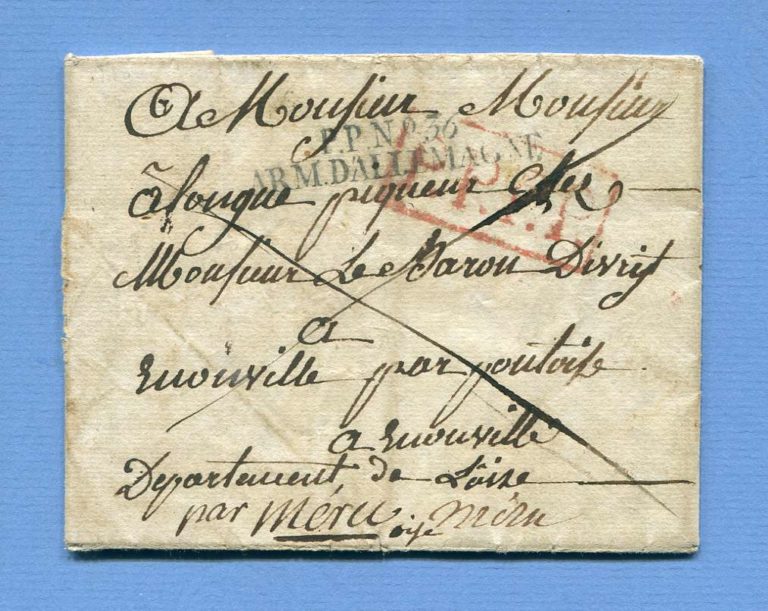 A Monsieur Monsieur
P.P.Nº.36
ARM.D'ALLEMAGNE
P.P.P.P.
alongue piqueur chez
Monsieur Le Baron Divry
a
enonville par pontoise
a enonville
Departement de Loise
par Méru oise méru